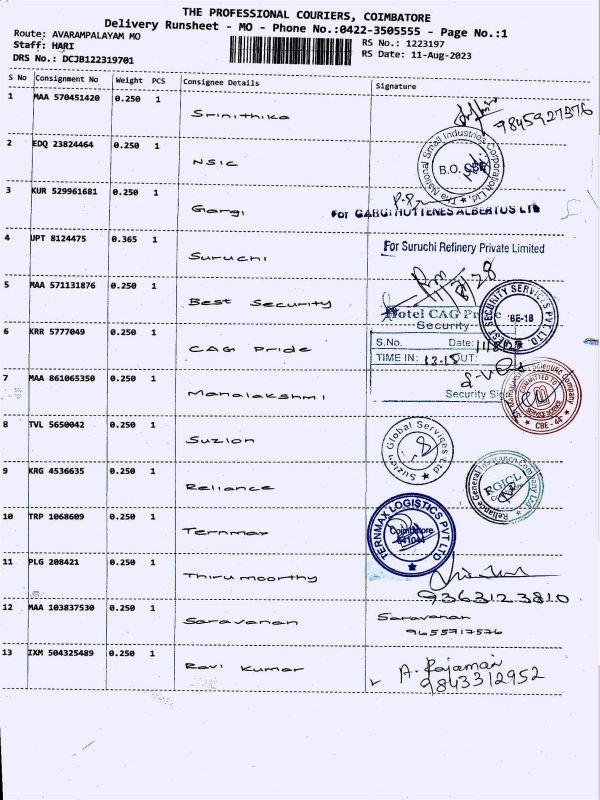 THE PROFESSIONAL COURIERS, COIMBATORE
Delivery Runsheet - MO - Phone No.:0422-3505555 - Page No.:1
Route: AVARAMPALAYAM MO
Staff: HARI
DRS No.: DCJB122319701
RS No.: 1223197
RS Date: 11-Aug-2023
S No Consignment No Weight PCS Consignee Details Signature
1 MAA 570451420 0.250 1 Srinithika
9845927376
2 EDQ 23824464 0.250 1 NSIC
The National Small Industries Corporation Ltd.
B.O. CBE
3 KUR 529961681 0.250 1 Gargi
For GARGI HUTTENES ALBERTUS LTD
4 UPT 8124475 0.365 1 Suruchi
For Suruchi Refinery Private Limited
5 MAA 571131876 0.250 1 Best Security
BEST SECURITY SERVICES PVT. LTD.
CBE-18
6 KRR 5777049 0.250 1 CAG Pride
Hotel CAG Pride
Security
S.No. Date:
TIME IN: 13-15 OUT:
Security Sig
7 MAA 861065350 0.250 1 Mahalakshmi
Scientific Company
COMMITTED TO
CBE - 44
8 TVL 5650042 0.250 1 Suzlon
Suzlon Global Services Ltd
9 KRG 4536635 0.250 1 Reliance
Reliance General Insurance Company Ltd.
RGICL
10 TRP 1068609 0.250 1 Ternmax
TERNMAX LOGISTICS PVT LTD
Coimbatore
641044
11 PLG 208421 0.250 1 Thirumoorthy
9363123810
12 MAA 103837530 0.250 1 Saravanan
Saravanan
9655717576
13 IXM 504325489 0.250 1 Ravi Kumar
A. Rajamani
9843312952